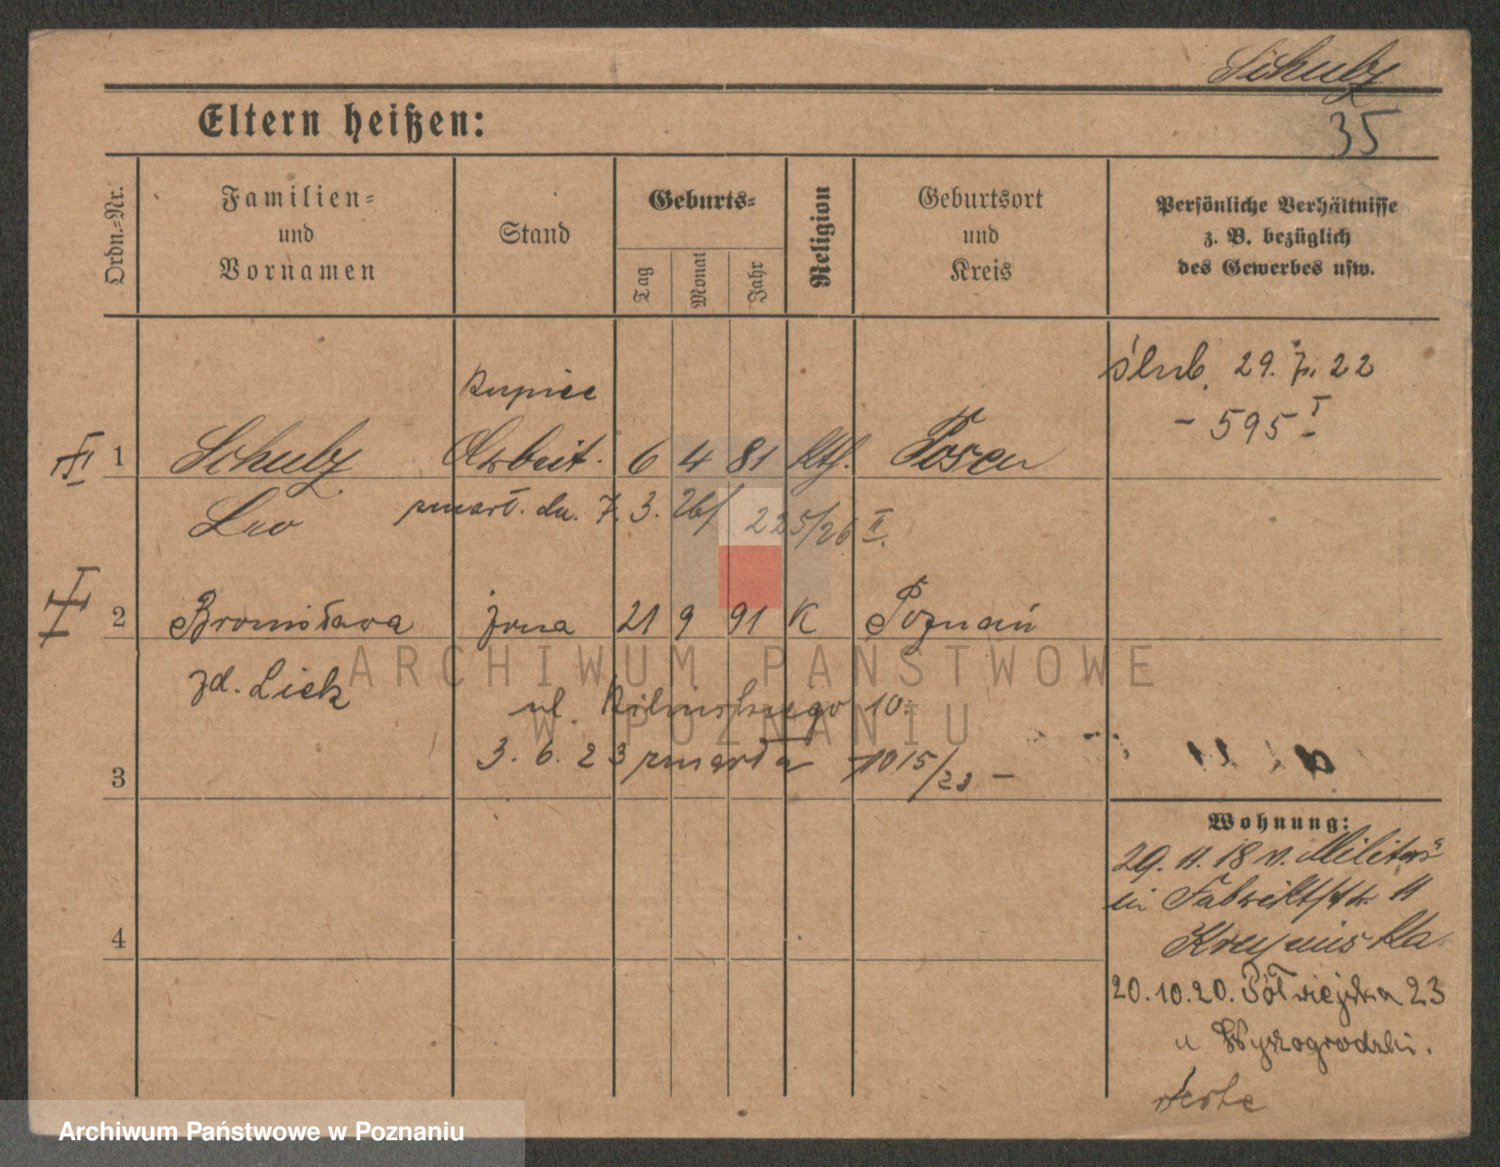 Schulz
Eltern heißen:
35
Ordn.-Nr.
Familien-
und
Vornamen
Stand
Geburts-
Tag
Monat
Jahr
Religion
Geburtsort
und
Kreis
Persönliche Verhältnisse
z. B. bezüglich
des Gewerbes usw.
ślub. 29. 7. 22
- 595 I -
kupiec
1 Schulz Arbeit. 6 4 81 kth. Posen
Leo zmarł. dn. 7. 3. 26/ 225/26 II.
2 Bronisława żona 21 9 91 K Poznań
zd. Lisk
ul. Kilińskiego 10.
3. 6. 23 zmarła 1015/23 -
3
Wohnung:
29. 11. 18 v. Militär
in Fabrikstr. 11
20. 10. 20. Półwiejska 23
u Wyszogrodzki.
4
ARCHIWUM PAŃSTWOWE
W POZNANIU
Archiwum Państwowe w Poznaniu